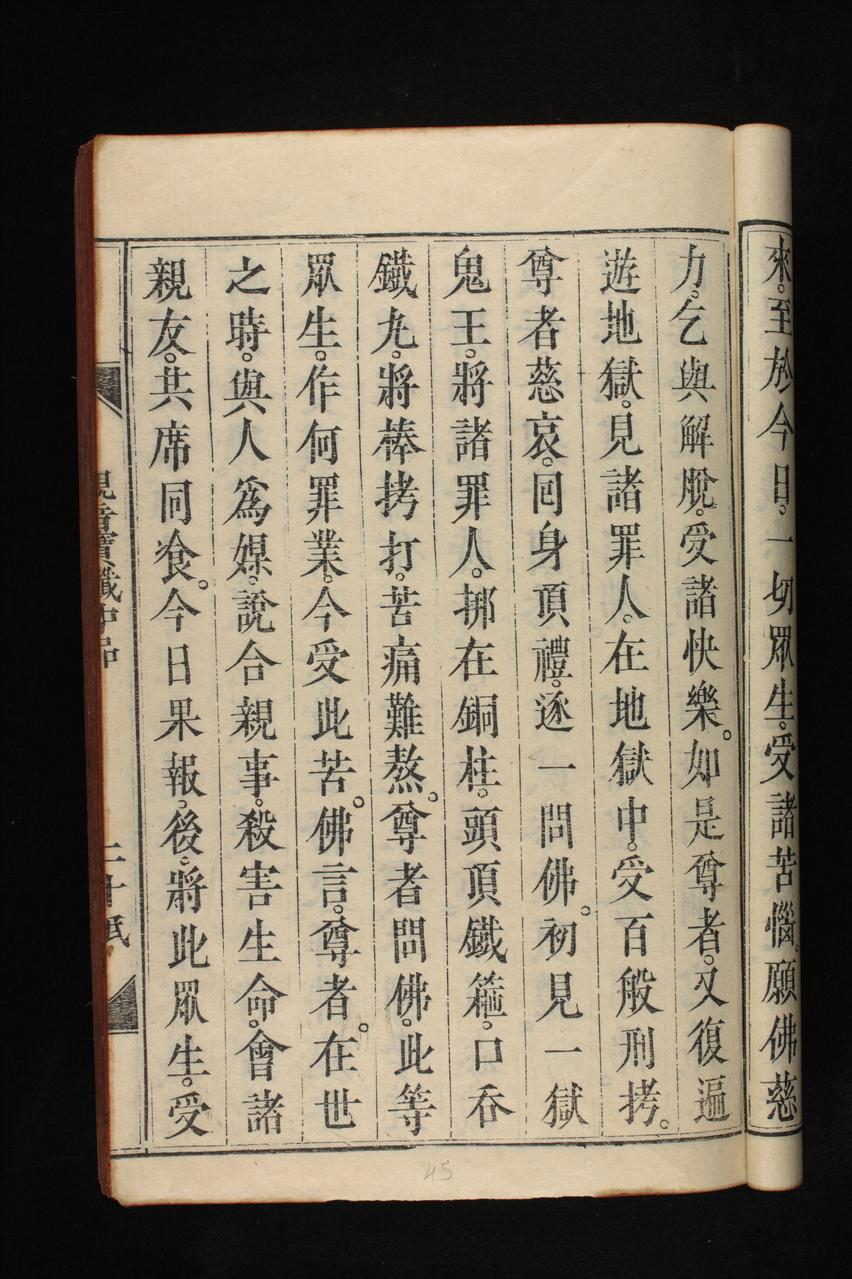 來。至於今日。一切眾生。受諸苦惱。願佛慈
力。乞與解脫。受諸快樂。如是尊者。又復遍
遊地獄。見諸罪人。在地獄中。受百般刑拷。
尊者慈哀。回身頂禮。逐一問佛。初見一獄
鬼王。將諸罪人。掷在銅柱。頭頂鐵箍。口吞
鐵丸。將棒拷打。苦痛難熬。尊者問佛。此等
眾生。作何罪業。今受此苦。佛言。尊者。在世
之時。與人爲媒。說合親事。殺害生命。會諸
親友。共席同飡。今日果報。後。將此眾生。受
觀音寶懺中品
二十
45